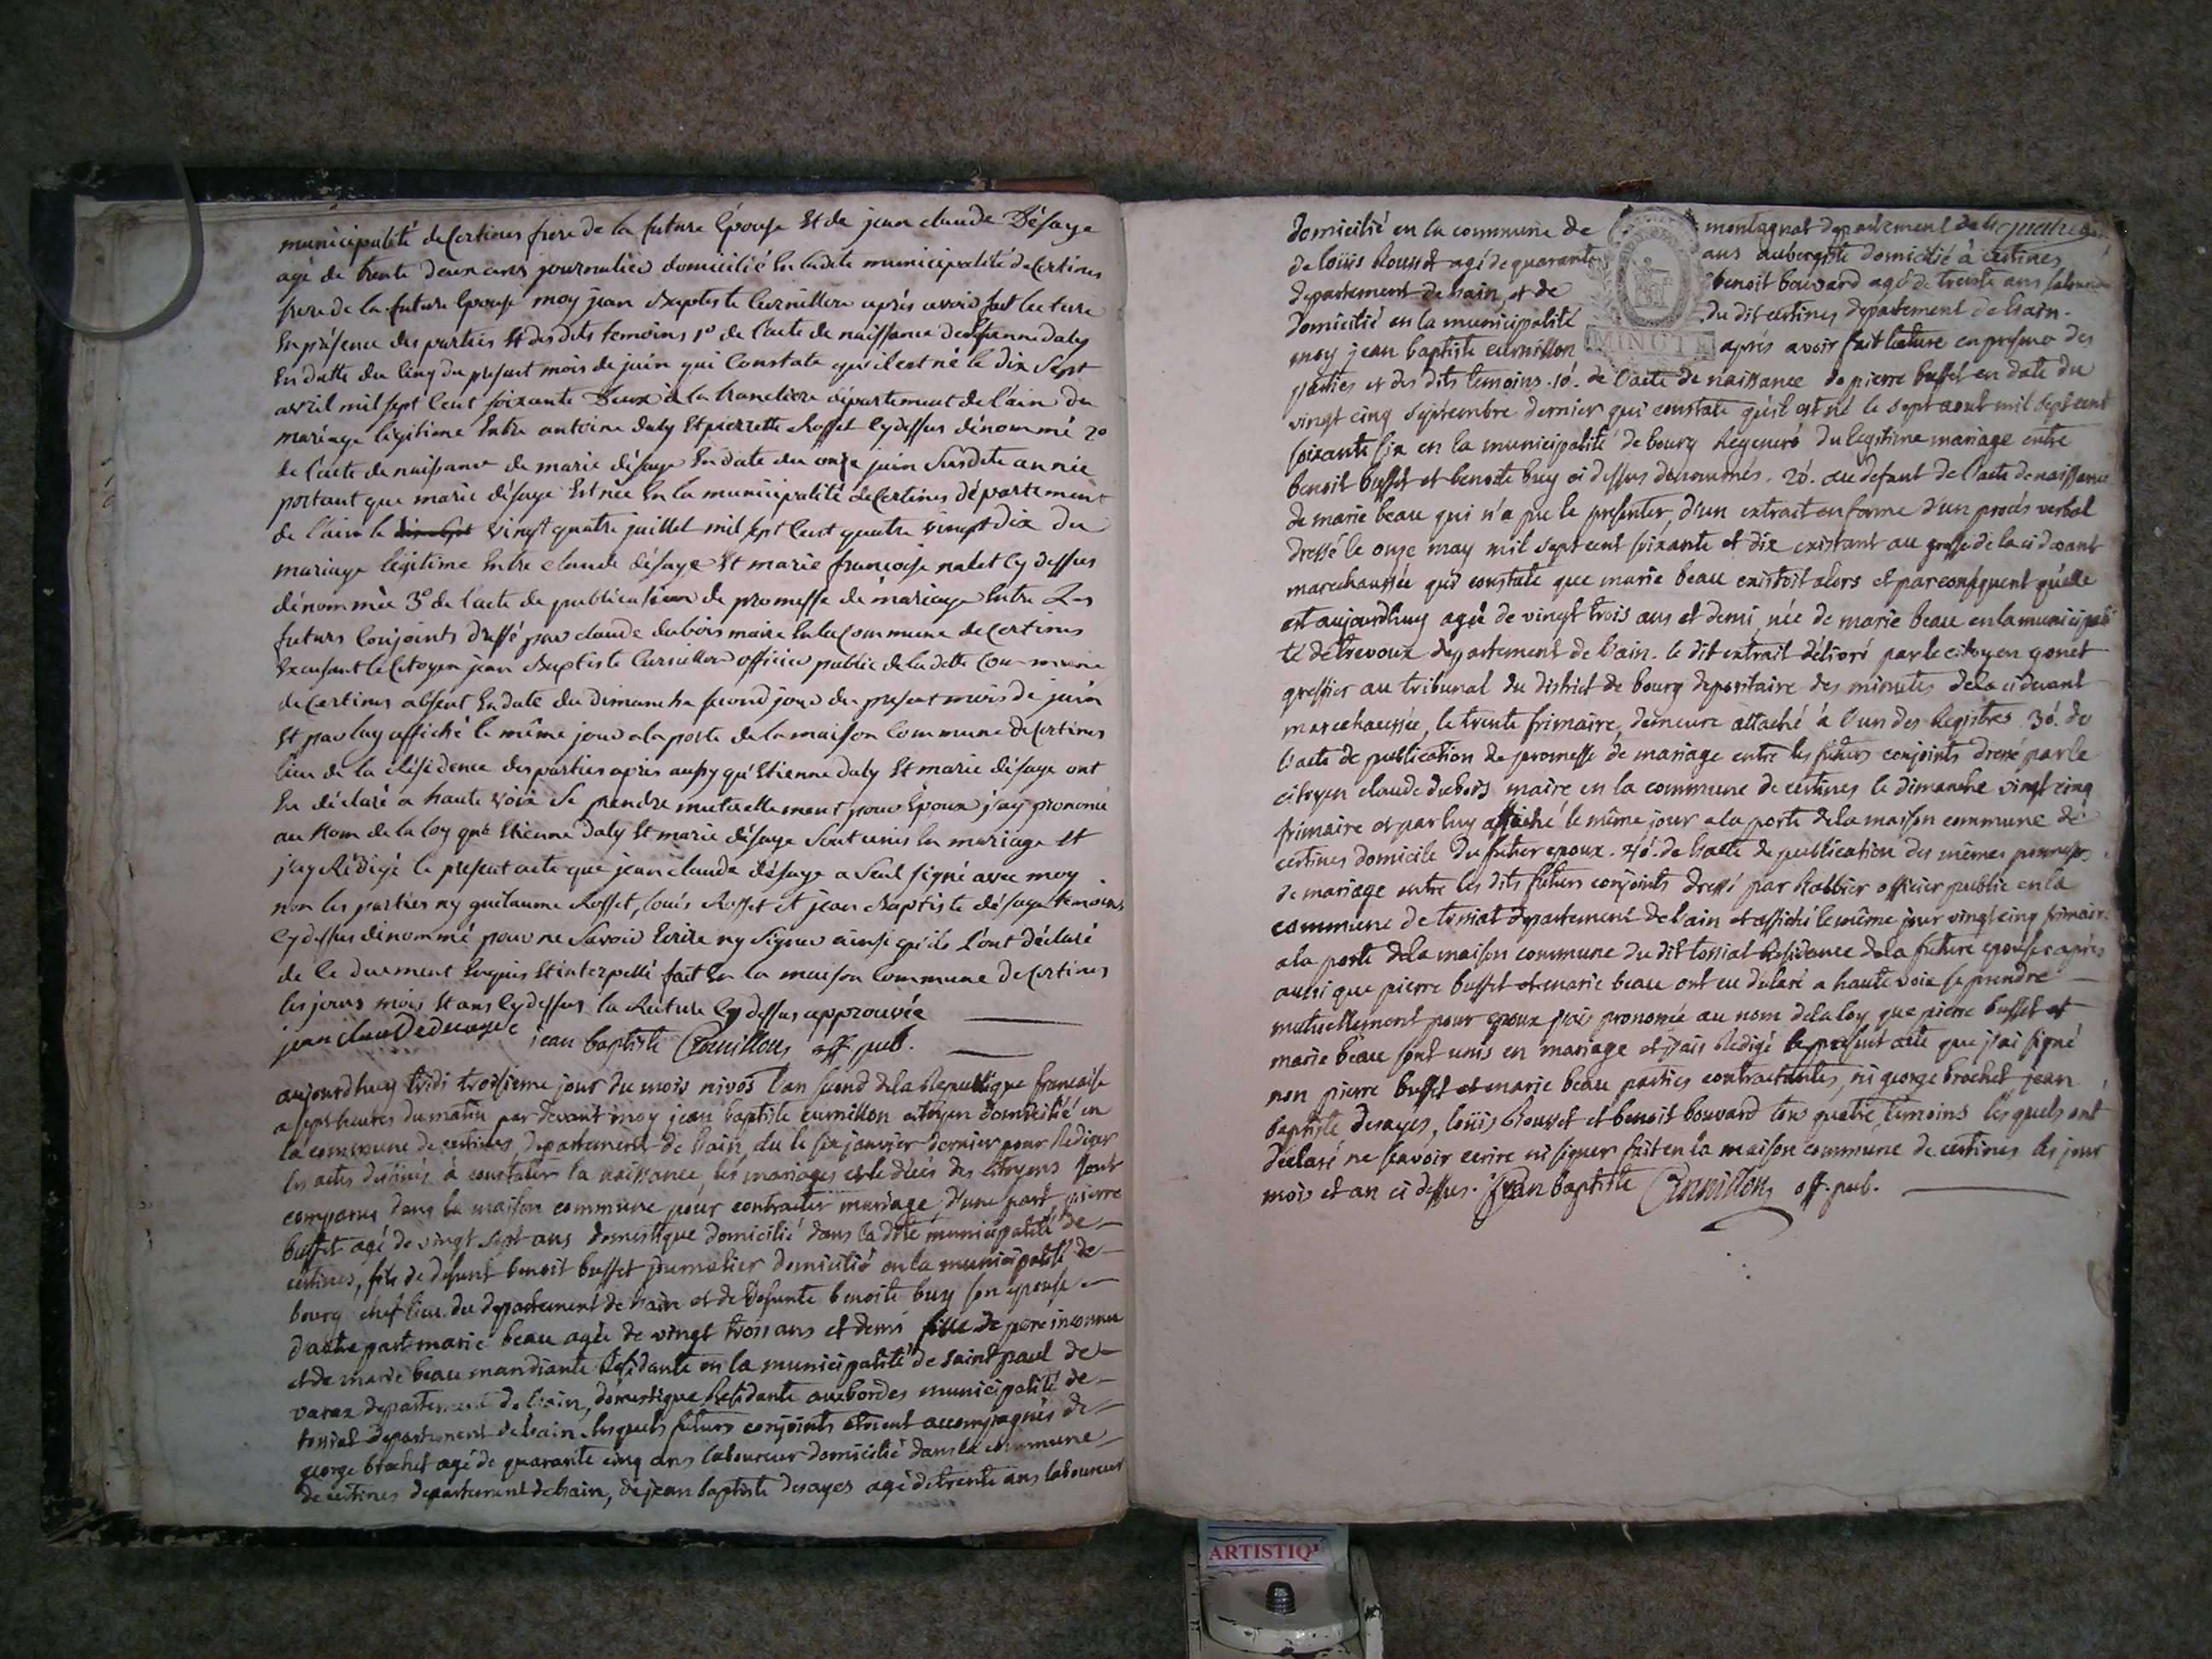 municipalité de Certines frere de la future Epouse Et de jean claude Désaye
agé de trente deux ans journalier domicilié En ladite municipalité de Certines
frere de la future Epouse moy jean Baptiste Curnillon aprés avoir fait lecture
En présence des parties Et des dits temoins 1º de l'acte de naissance d'Estienne daly
En datte du Cinq du present mois de juin qui Constate qu'il est né le dix Sept
avril mil sept Cent soixante Deux à la tranclière département de l'ain du
mariage légitime Entre antoine daly Et pierrette Rosset Cy dessus dénommé 2º
de l'acte de naissance de marie désaye En date du onze juin Susdite année
portant que marie désaye Est née En la municipalité de Certines département
de l'ain le vingt quatre juillet mil sept Cent quatre vingt dix du
mariage légitime Entre claude désaye Et marie francoise nalet Cy dessus
dénommée 3º de l'acte de publication de promesse de mariage Entre Les
futurs Conjoints dressé par claude dubois maire En la Commune de Certines
Excusant le Citoyen jean Baptiste Curnillon officier public de ladette Commune
de Certines absent En date du dimanche second jour du present mois de juin
Et par luy affiché le même jour a la porte de la maison Commune de Certines
lieu de la Résidence des parties aprés aussy qu'Etienne daly Et marie désaye ont
Eu déclaré a haute voix Se prendre mutuellement pour Epoux j'ay prononcé
au Nom de la loy que Etienne daly Et marie désaye Sont unis En mariage Et
j'ay Rédigé le present acte que jean claude désaye a Seul signé avec moy
non les parties ny guilaume Rosset, louis Rosset et jean Baptiste désaye temoins
Cy dessus dénommé pour ne Savoir Ecrire ny Signer ainsi qu'ils l'ont déclaré
de Ce duement Enquis Et interpellé fait En la maison Commune de Certines
les jours mois Et ans Cy dessus la Rature Cy dessus approuvée
jean claude jean baptiste Curnillon off. pub.
aujourdhuy tridi troisieme jour du mois nivos l'an second de la Republique francaise
a sept heures du matin par devant moy jean baptiste curnillon citoyen domicilié en
la commune de certines, departement de l'ain, élu le six janvier dernier pour Rediger
les actes destinés à constater la naissance, les mariages et le décés des citoyens sont
comparus dans la maison commune pour contracter mariage, d'une part pierre
buffet agé de vingt sept ans domestique domicilié dans la dite municipalité de
certines, fils de defunt benoit buffet journalier domicilié en la municipalité de
bourg chef lieu du departement de l'ain et de defunte benoite buy son epouse
d'autre part marie beau agée de vingt trois ans et demi fille de pere inconnu
et de marie beau mandiante Residante en la municipalité de saint paul de
varax departement de l'ain, domestique Residante aux bordes municipalité de
tossiat departement de l'ain. lesquels futurs conjoints etoient accompagnés de
george brochet agé de quarante cinq ans laboureur domicilié dans la commune
de certines departement de l'ain, de jean baptiste desayes agé de trente ans laboureur
domicilié en la commune de montagnat departement de
de loüis Rousset agé de quarante ans aubergiste domicilié à certines
departement de l'ain, et de benoit bouvard agé de trente ans
domicilié en la municipalité du dit certines departement de l'ain.
moy jean baptiste curnillon MINUTE aprés avoir fait lecture en presence des
parties et des dits temoins. 1º. de l'acte de naissance de pierre buffet en date du
vingt cinq septembre dernier qui constate qu'il est né le sept aout mil sept cent
soixante six en la municipalité de bourg Regeneré du legitime mariage entre
benoit buffet et benoite buy ci dessus denommés. 2º. au defaut de l'acte de naissance
de marie beau qui n'a pu le presenter, d'un extrait en forme d'un procés verbal
dressé le onze may mil sept cent soixante et dix existant au greffe de la ci devant
marechaussée qui constate que marie beau existoit alors et par conséquent qu'elle
est aujourdhuy agée de vingt trois ans et demi, née de marie beau en la municipali
té de trevoux departement de l'ain. le dit extrait délivré par le citoyen gonet
greffier au tribunal du district de bourg depositaire des minutes de la ci devant
marechaussée, le trente frimaire, demeure attaché à l'un des Registres. 3º. de
l'acte de publication de promesse de mariage entre les futurs conjoints dressé par le
citoyen claude dubois maire en la commune de certines le dimanche vingt cinq
frimaire et par luy affiché le même jour a la porte de la maison commune de
certines domicile du futur epoux. 4º. de l'acte de publication des mêmes promesses
de mariage entre les dits futurs conjoints dressé par officier public en la
commune de tossiat departement de l'ain et affiché le même jour vingt cinq frimaire
a la porte de la maison commune du dit tossiat Residence de la future epouse aprés
aussi que pierre buffet et marie beau ont eu déclaré a haute voix se prendre
mutuellement pour epoux j'ai prononcé au nom de la loy que pierre buffet et
marie beau sont unis en mariage et j'ais Redigé le present acte que j'ai signé
non pierre buffet et marie beau parties contractantes, ni george brochet jean
baptiste desayes, loüis Rousset et benoit bouvard tous quatre temoins lesquels ont
déclaré ne sçavoir ecrire ni signer fait en la maison commune de certines les jour
mois et an ci dessus. Jean baptiste Curnillon off. pub.
ARTISTIQ